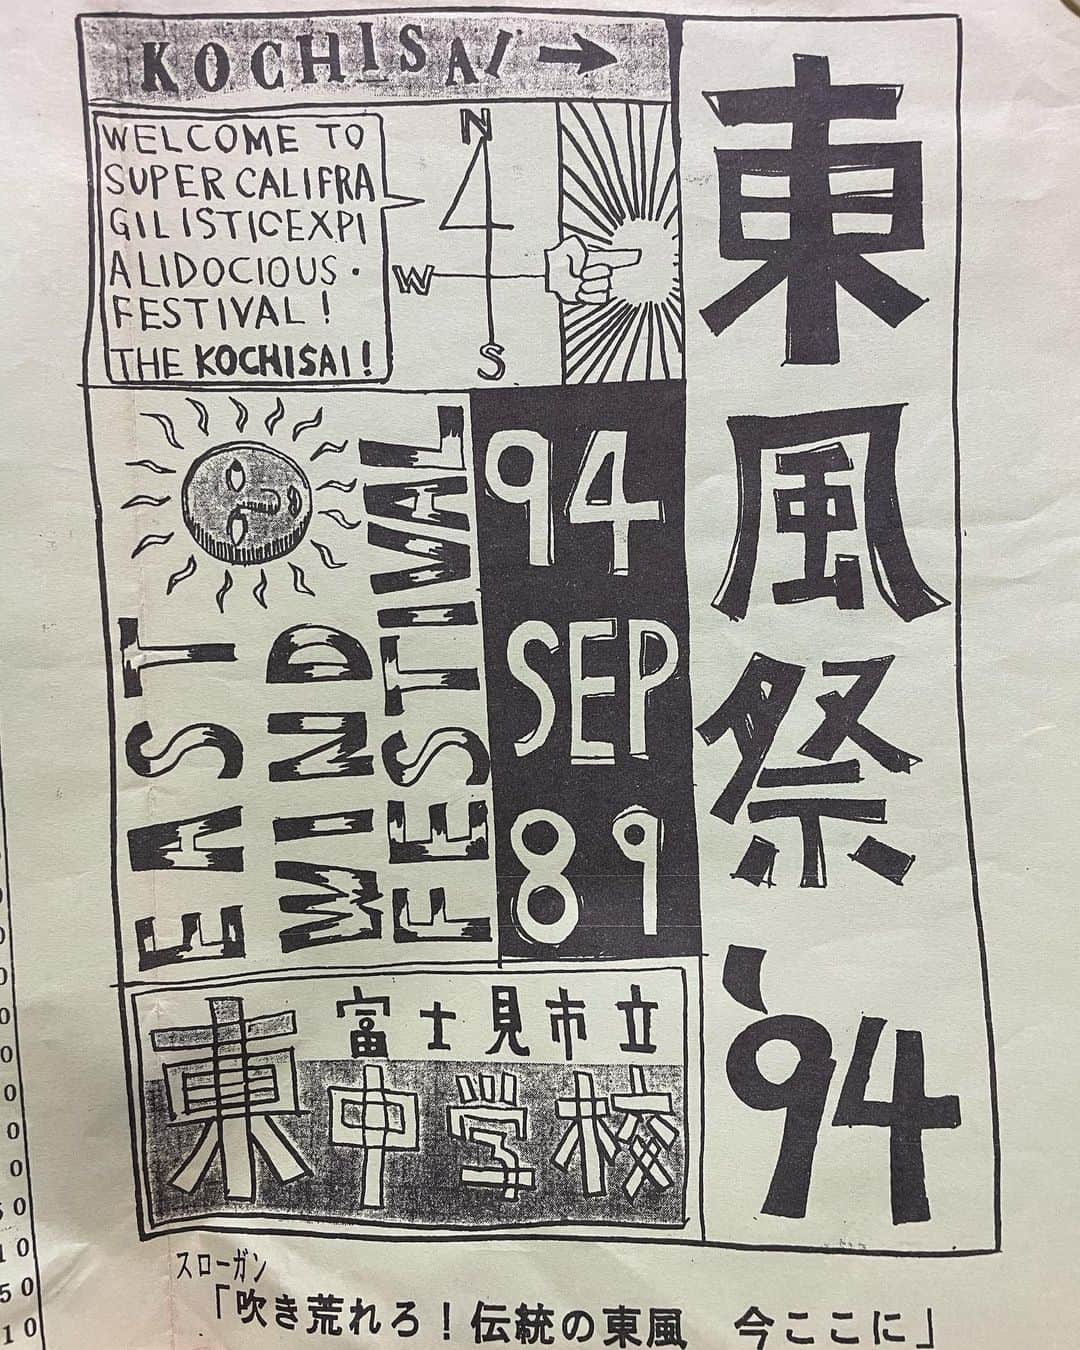 KOCHISAI →
WELCOME TO
SUPER CALIFRA
GILISTICEXPI
ALIDOCIOUS・
FESTIVAL!
THE KOCHISAI!
N
W
S
東風祭'94
EAST
WIND
FESTIVAL
94
SEP
89
富士見市立
東中学校
スローガン
「吹き荒れろ!伝統の東風 今ここに」